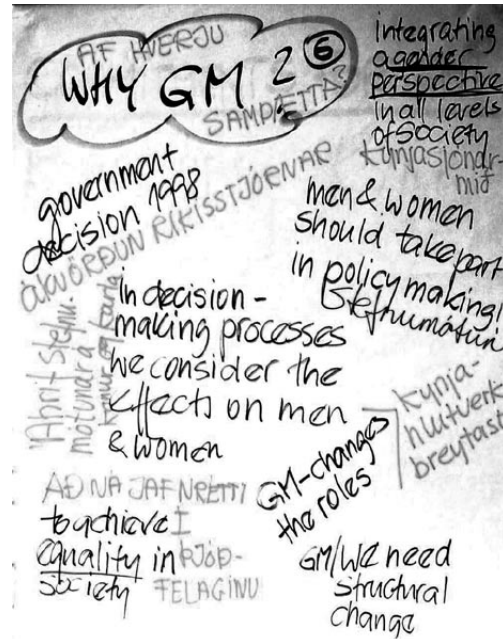 AF HVERJU
WHY GM 2 6
SAMÞÆTTA?
integrating
a gender
perspective
in all levels
of society
kynjasjónar-
mið
government
decision 1998
ÁKVÖRÐUN RÍKISSTJÓRNAR
men & women
should take part
in policy making!
Stefnumótun
Áhrif stefnu-
mótunar á
konur og karla
in decision-
making processes
we consider the
effects on men
& women
kynja-
hlutverk
breytast
GM-changes
the roles
AÐ NÁ JAFNRÉTTI
to achieve Í
equality in ÞJÓÐ-
society FELAGINU
GM/We need
structural
change